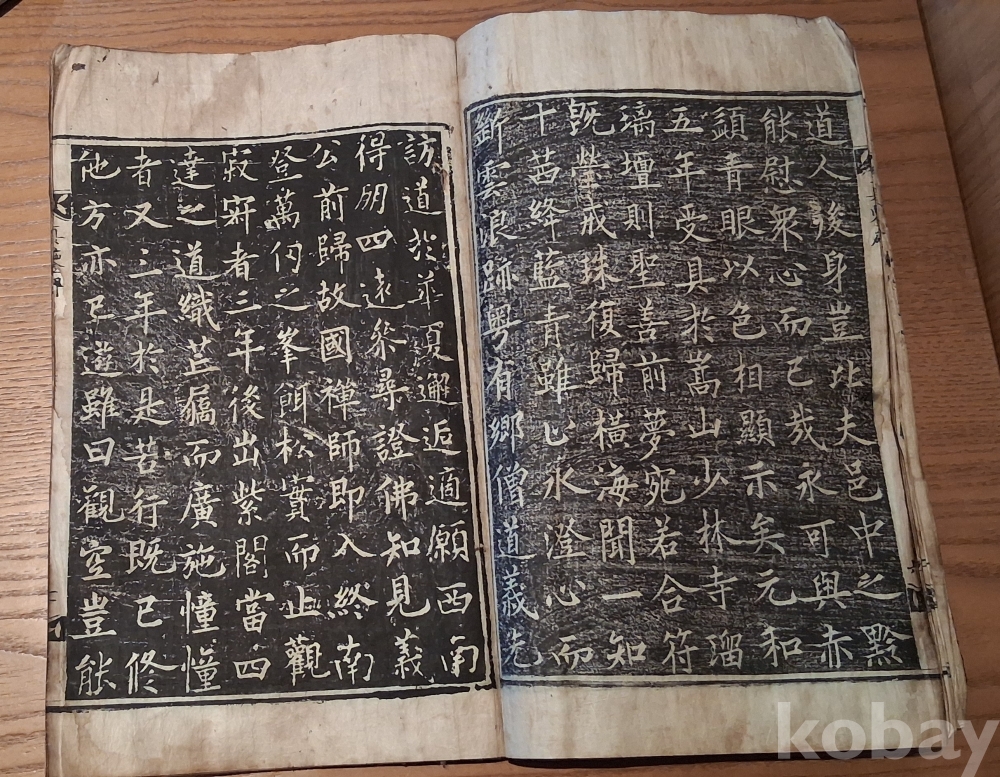 道人後身豈比夫邑中之黔
能慰衆心而已哉永可與赤
頿青眼以色相顯示矣元和
五年受具於嵩山少林寺瑠
璃壇則聖善前夢宛若合符
既瑩戒珠復歸橫海聞一知
十茜絳藍青雖止水澄心而
斷雲浪跡粤有鄉僧道義先
訪道於華夏邂逅適願西南
得朋四遠叅尋證佛知見義
公前歸故國禪師即入終南
登萬仞之峯餌松實而止觀
寂寂者三年後出紫閣當四
達之道織芒屩而廣施憧憧
者又三年於是苦行既已修
他方亦已遊雖曰觀空豈能
kobay